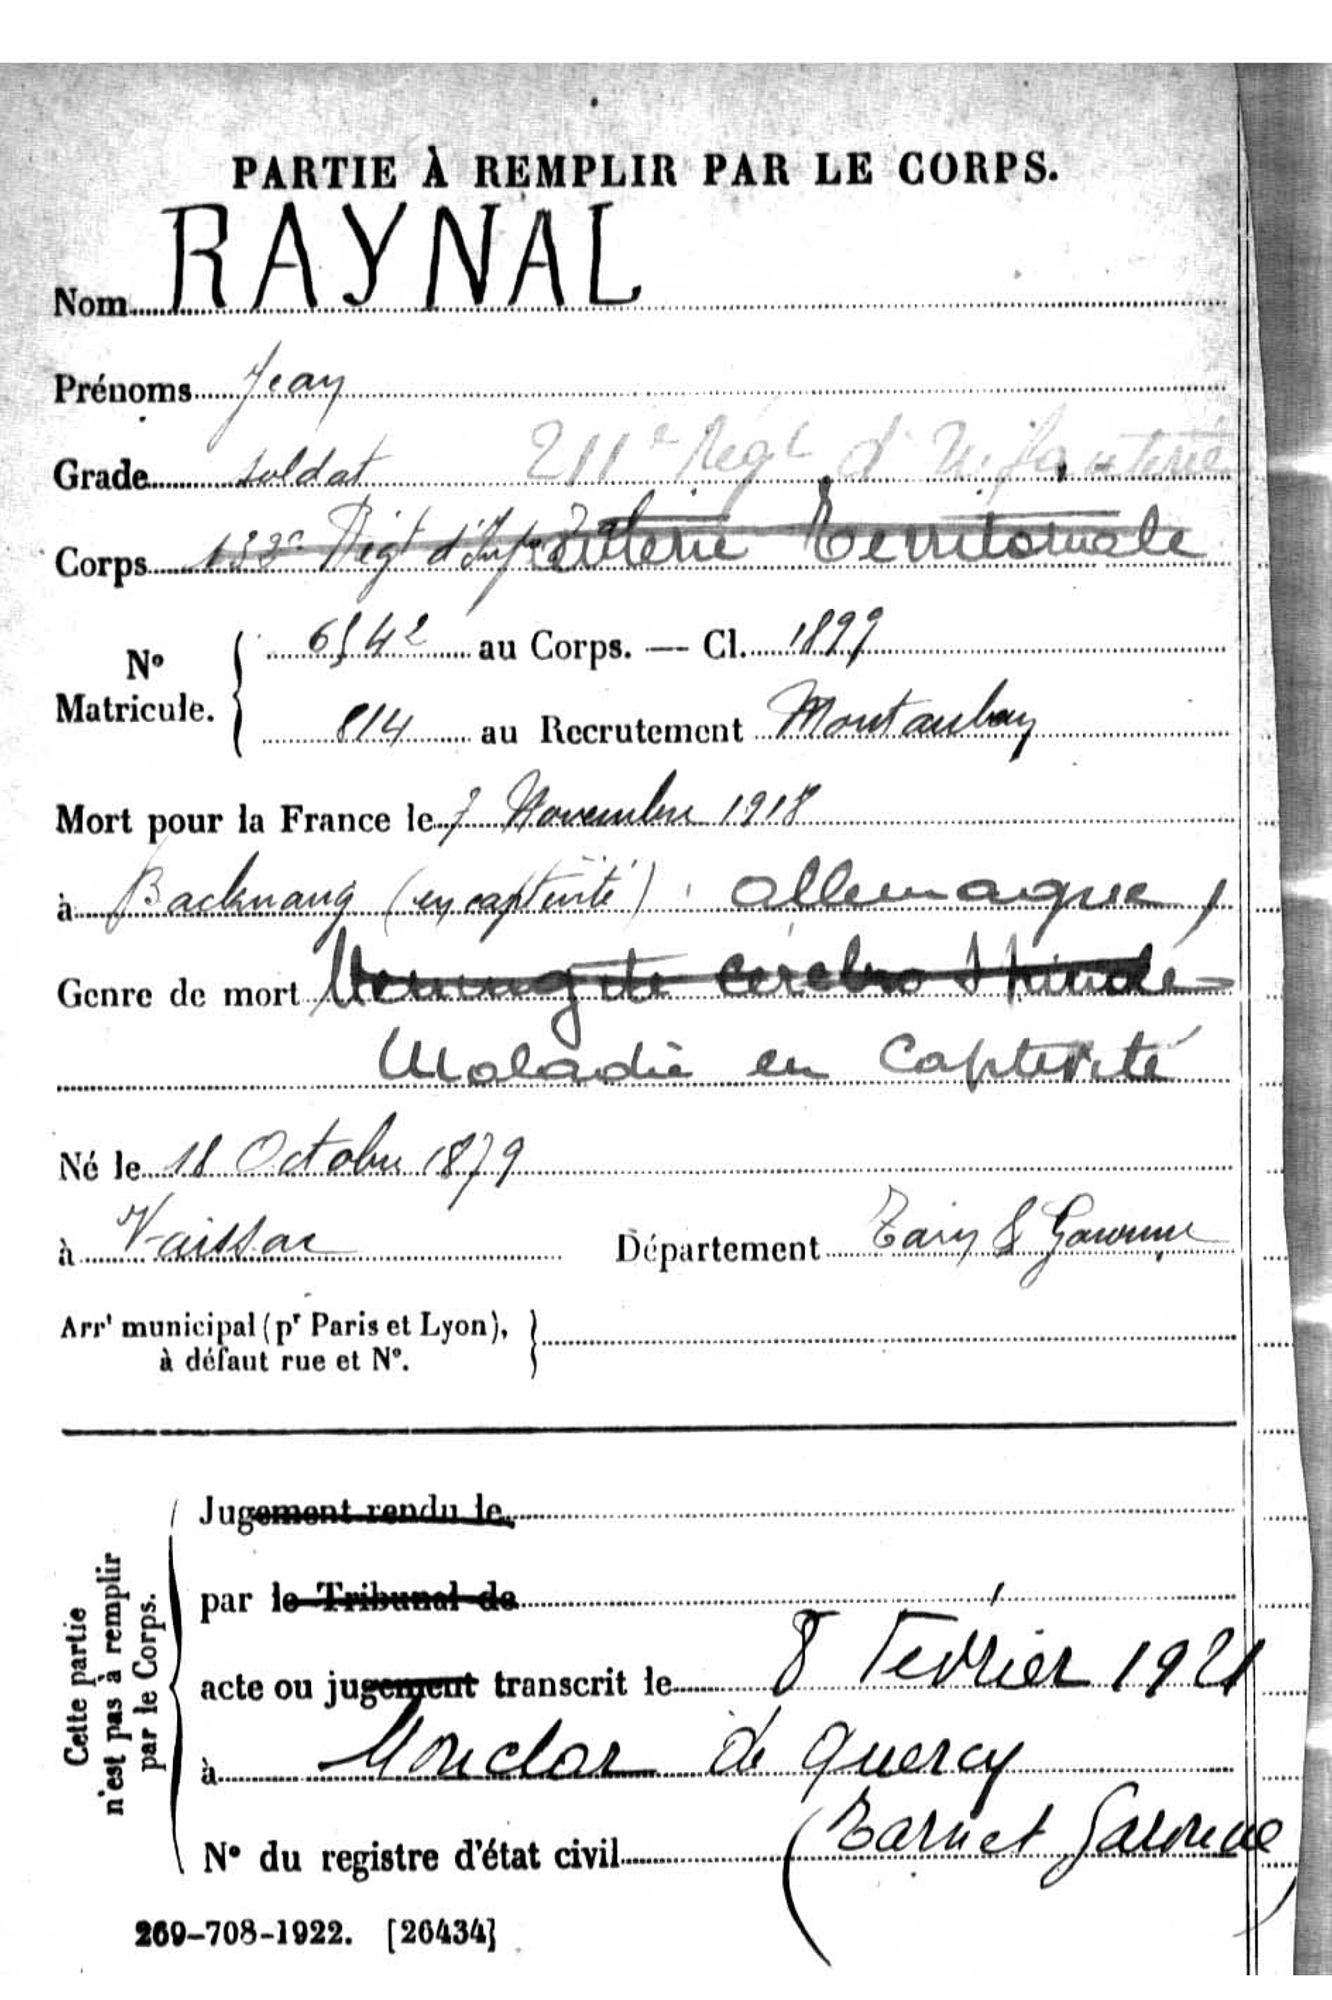 PARTIE À REMPLIR PAR LE CORPS.
Nom RAYNAL
Prénoms Jean
Grade soldat 211e Régt d'Infanterie
Corps 132e Régt d'Infanterie Territoriale
No Matricule. 6542 au Corps. — Cl. 1899
814 au Recrutement Montauban
Mort pour la France le 7 Novembre 1918
à Backnang (en captivité) Allemagne
Genre de mort Meningite cérébro Spinale
Maladie en Captivité
Né le 18 Octobre 1879
à Vaissac Département Tarn & Garonne
Arrt municipal (pr Paris et Lyon),
à défaut rue et No.
Cette partie
n'est pas à remplir
par le Corps.
Jugement rendu le
par le Tribunal de
acte ou jugement transcrit le 8 Février 1921
à Monclar de Quercy
No du registre d'état civil (Tarn et Garonne)
269-708-1922. [26434]